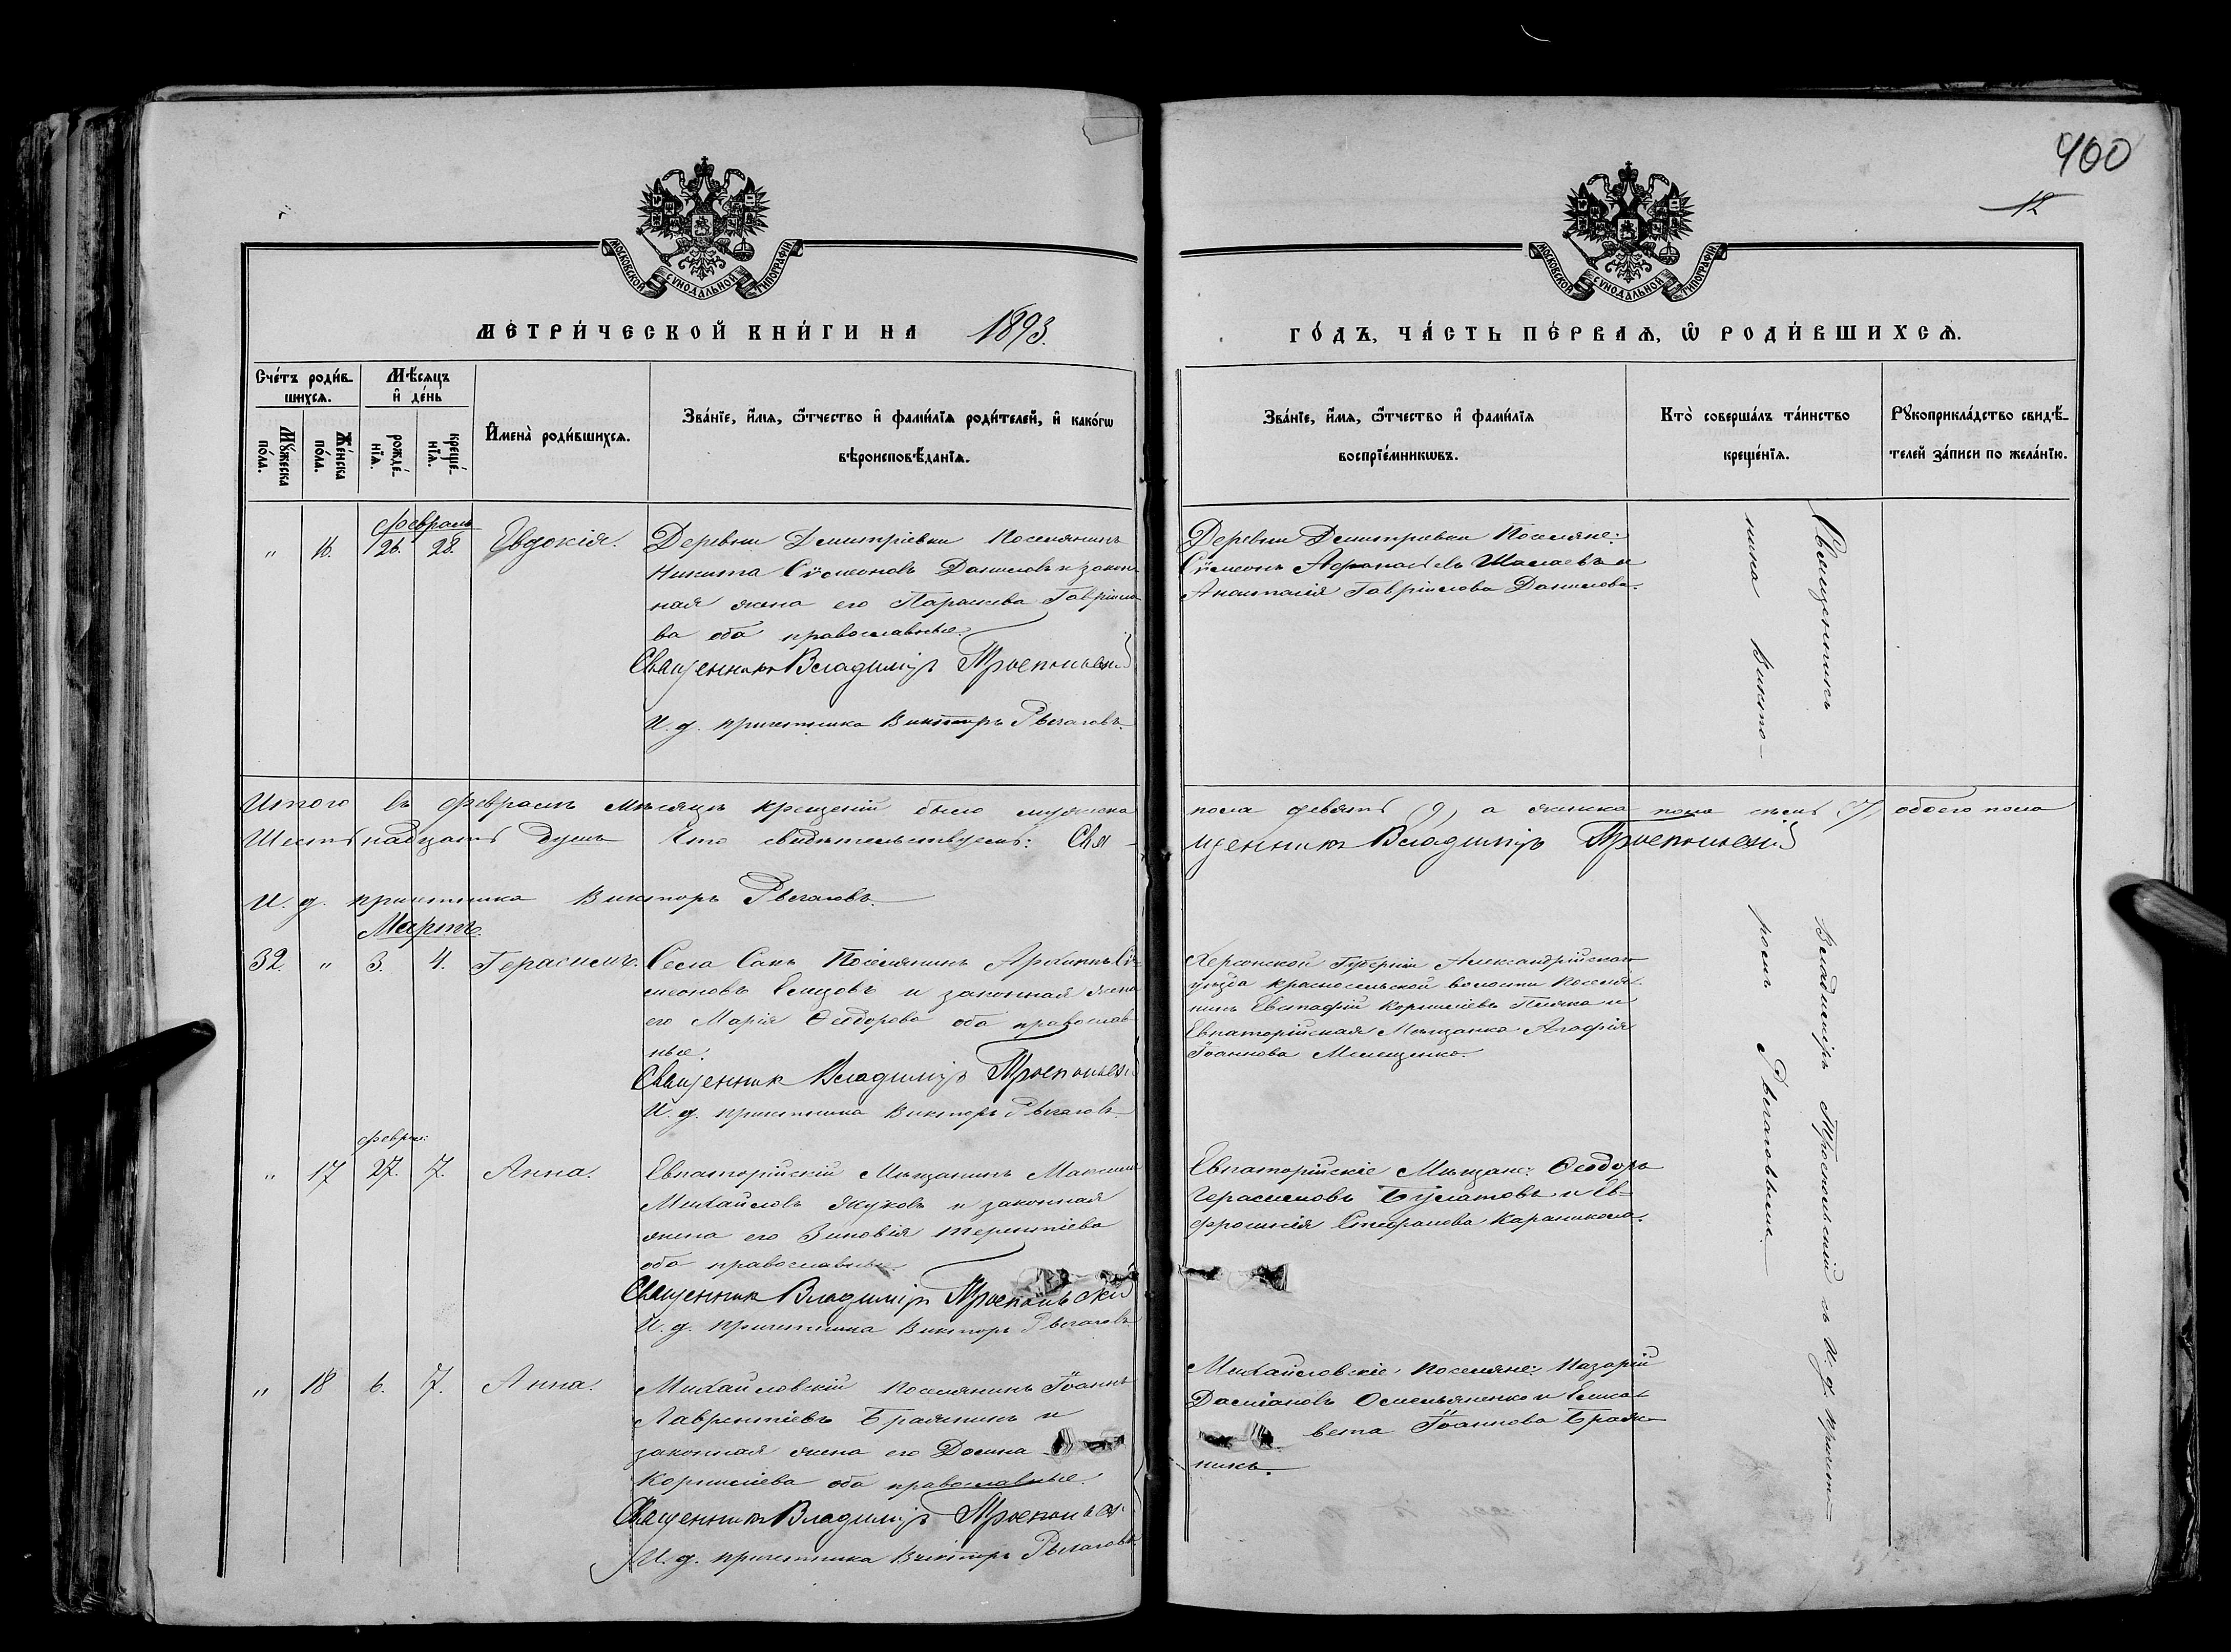 400
12
МОСКОВСКОЙ СѴНОДАЛЬНОЙ ТИПОГРАФІИ
МОСКОВСКОЙ СѴНОДАЛЬНОЙ ТИПОГРАФІИ
МЕТРИ́ЧЕСКОЙ КНИ́ГИ НА 1893.
ГО́ДЪ, ЧА́СТЬ ПЕ́РВАѦ, Ѡ҆ РОДИ́ВШИХСѦ.
Сче́тъ роди́в-
шихсѧ.
Мꙋ́жеска по́ла.
Же́нска по́ла.
Мѣ́сѧцъ
и҆ де́нь
рожде́-нїѧ.
креще́-нїѧ.
И҆мена̀ роди́вшихсѧ.
Зва́нїе, и҆́мѧ, ѻ҆́тчество и҆ фами́лїѧ роди́телей, и҆ како́гѡ
вѣроисповѣ́данїѧ.
Зва́нїе, и҆́мѧ, ѻ҆́тчество и҆ фами́лїѧ
воспрїе́мникѡвъ.
Кто̀ соверша́лъ та́инство
креще́нїѧ.
Рꙋкоприкла́дство свидѣ́-
телей за́писи по жела́нїю.
Февраль
" 16. 26. 28. Евдокія.
Деревни Димитріевки Поселянинъ
Никита Сѵмеоновъ Даниловъ и закон-
ная жена его Параскева Гавріило-
ва оба православные.
Священникъ Владиміръ Троепольскій
И. д. причетника Викторъ Рыгаловъ.
Деревни Димитриевки Поселяне:
Сѵмеонъ Афанасьевъ и
Анастасія Гавріилова Данилова.
Итого въ Февралѣ мѣсяцѣ крещеній было мужеска пола девять (9) а женска пола семь (7) обоего пола
Шестьнадцать душъ Что свидѣтельствуемъ: Свя-
щенникъ Владиміръ Троепольскій
И. д. причетника Викторъ Рыгаловъ.
Мартъ.
32. " 3. 4. Герасимъ.
Села Сакъ Поселянинъ Архиппъ Сѵ-
меоновъ и законная жена
его Марія Ѳеодорова оба православ-
ные.
Священникъ Владиміръ Троепольскій
И. д. причетника Викторъ Рыгаловъ.
Херсонской Губерніи Александрійскаго
уѣзда Красносельской волости поселя-
нинъ Евстафій Корниліевъ и
Евпаторійская Мѣщанка Агафія
Іоаннова
Феврал:
" 17 27. 7. Анна.
Евпаторійскій Мѣщанинъ Максимъ
Михайловъ Жуковъ и законная
жена его Зиновія Терентіева
оба православные.
Священникъ Владиміръ Троепольскій
И. д. причетника Викторъ Рыгаловъ
Евпаторійскіе Мѣщане: Ѳеодоръ
Герасимовъ Булатовъ и Ев-
фросинія Стефанова
" 18 6. 7. Анна.
Михайловскій поселянинъ Іоаннъ
Лаврентіевъ Бражникъ и
законная жена его Домна
Корниліева оба православные.
Священникъ Владиміръ Троепольскій
И. д. причетника Викторъ Рыгаловъ
Михайловскіе поселяне: Назарій
Даміановъ Омельяненко и Елиса-
вета Іоаннова Браж-
никъ.
Священникъ Владиміръ Троепольскій съ И. д. причет-
ника Викто-
ромъ Рыгаловымъ.